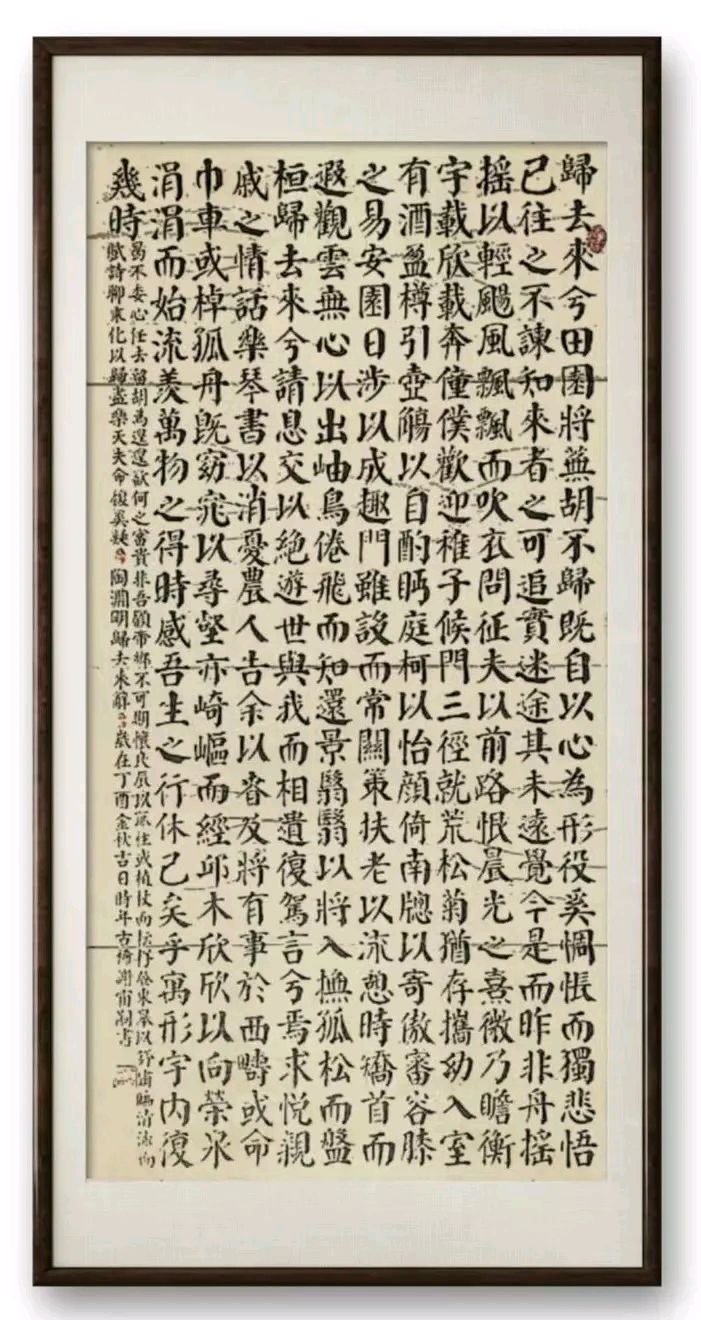 歸去來兮田園將蕪胡不歸既自以心為形役奚惆悵而獨悲悟
已往之不諫知來者之可追實迷途其未遠覺今是而昨非舟摇
摇以輕颺風飄飄而吹衣問征夫以前路恨晨光之熹微乃瞻衡
宇載欣載奔僮僕歡迎稚子候門三徑就荒松菊猶存攜幼入室
有酒盈樽引壺觴以自酌眄庭柯以怡顏倚南牕以寄傲審容膝
之易安園日涉以成趣門雖設而常關策扶老以流憩時矯首而
遐觀雲無心以出岫鳥倦飛而知還景翳翳以將入撫孤松而盤
桓歸去來兮請息交以絕遊世與我而相遺復駕言兮焉求悅親
戚之情話樂琴書以消憂農人告余以春及將有事於西疇或命
巾車或棹孤舟既窈窕以尋壑亦崎嶇而經邱木欣欣以向榮泉
涓涓而始流羨萬物之得時感吾生之行休已矣乎寓形宇内復
幾時
曷不委心任去留胡為遑遑欲何之富貴非吾願帝鄉不可期懷良辰以孤往或植杖而耘耔登東皋以舒嘯臨清流而
賦詩聊乘化以歸盡樂天夫命復奚疑 陶淵明歸去來辭 歲在丁酉金秋吉日時年古稀謝甫嗣書